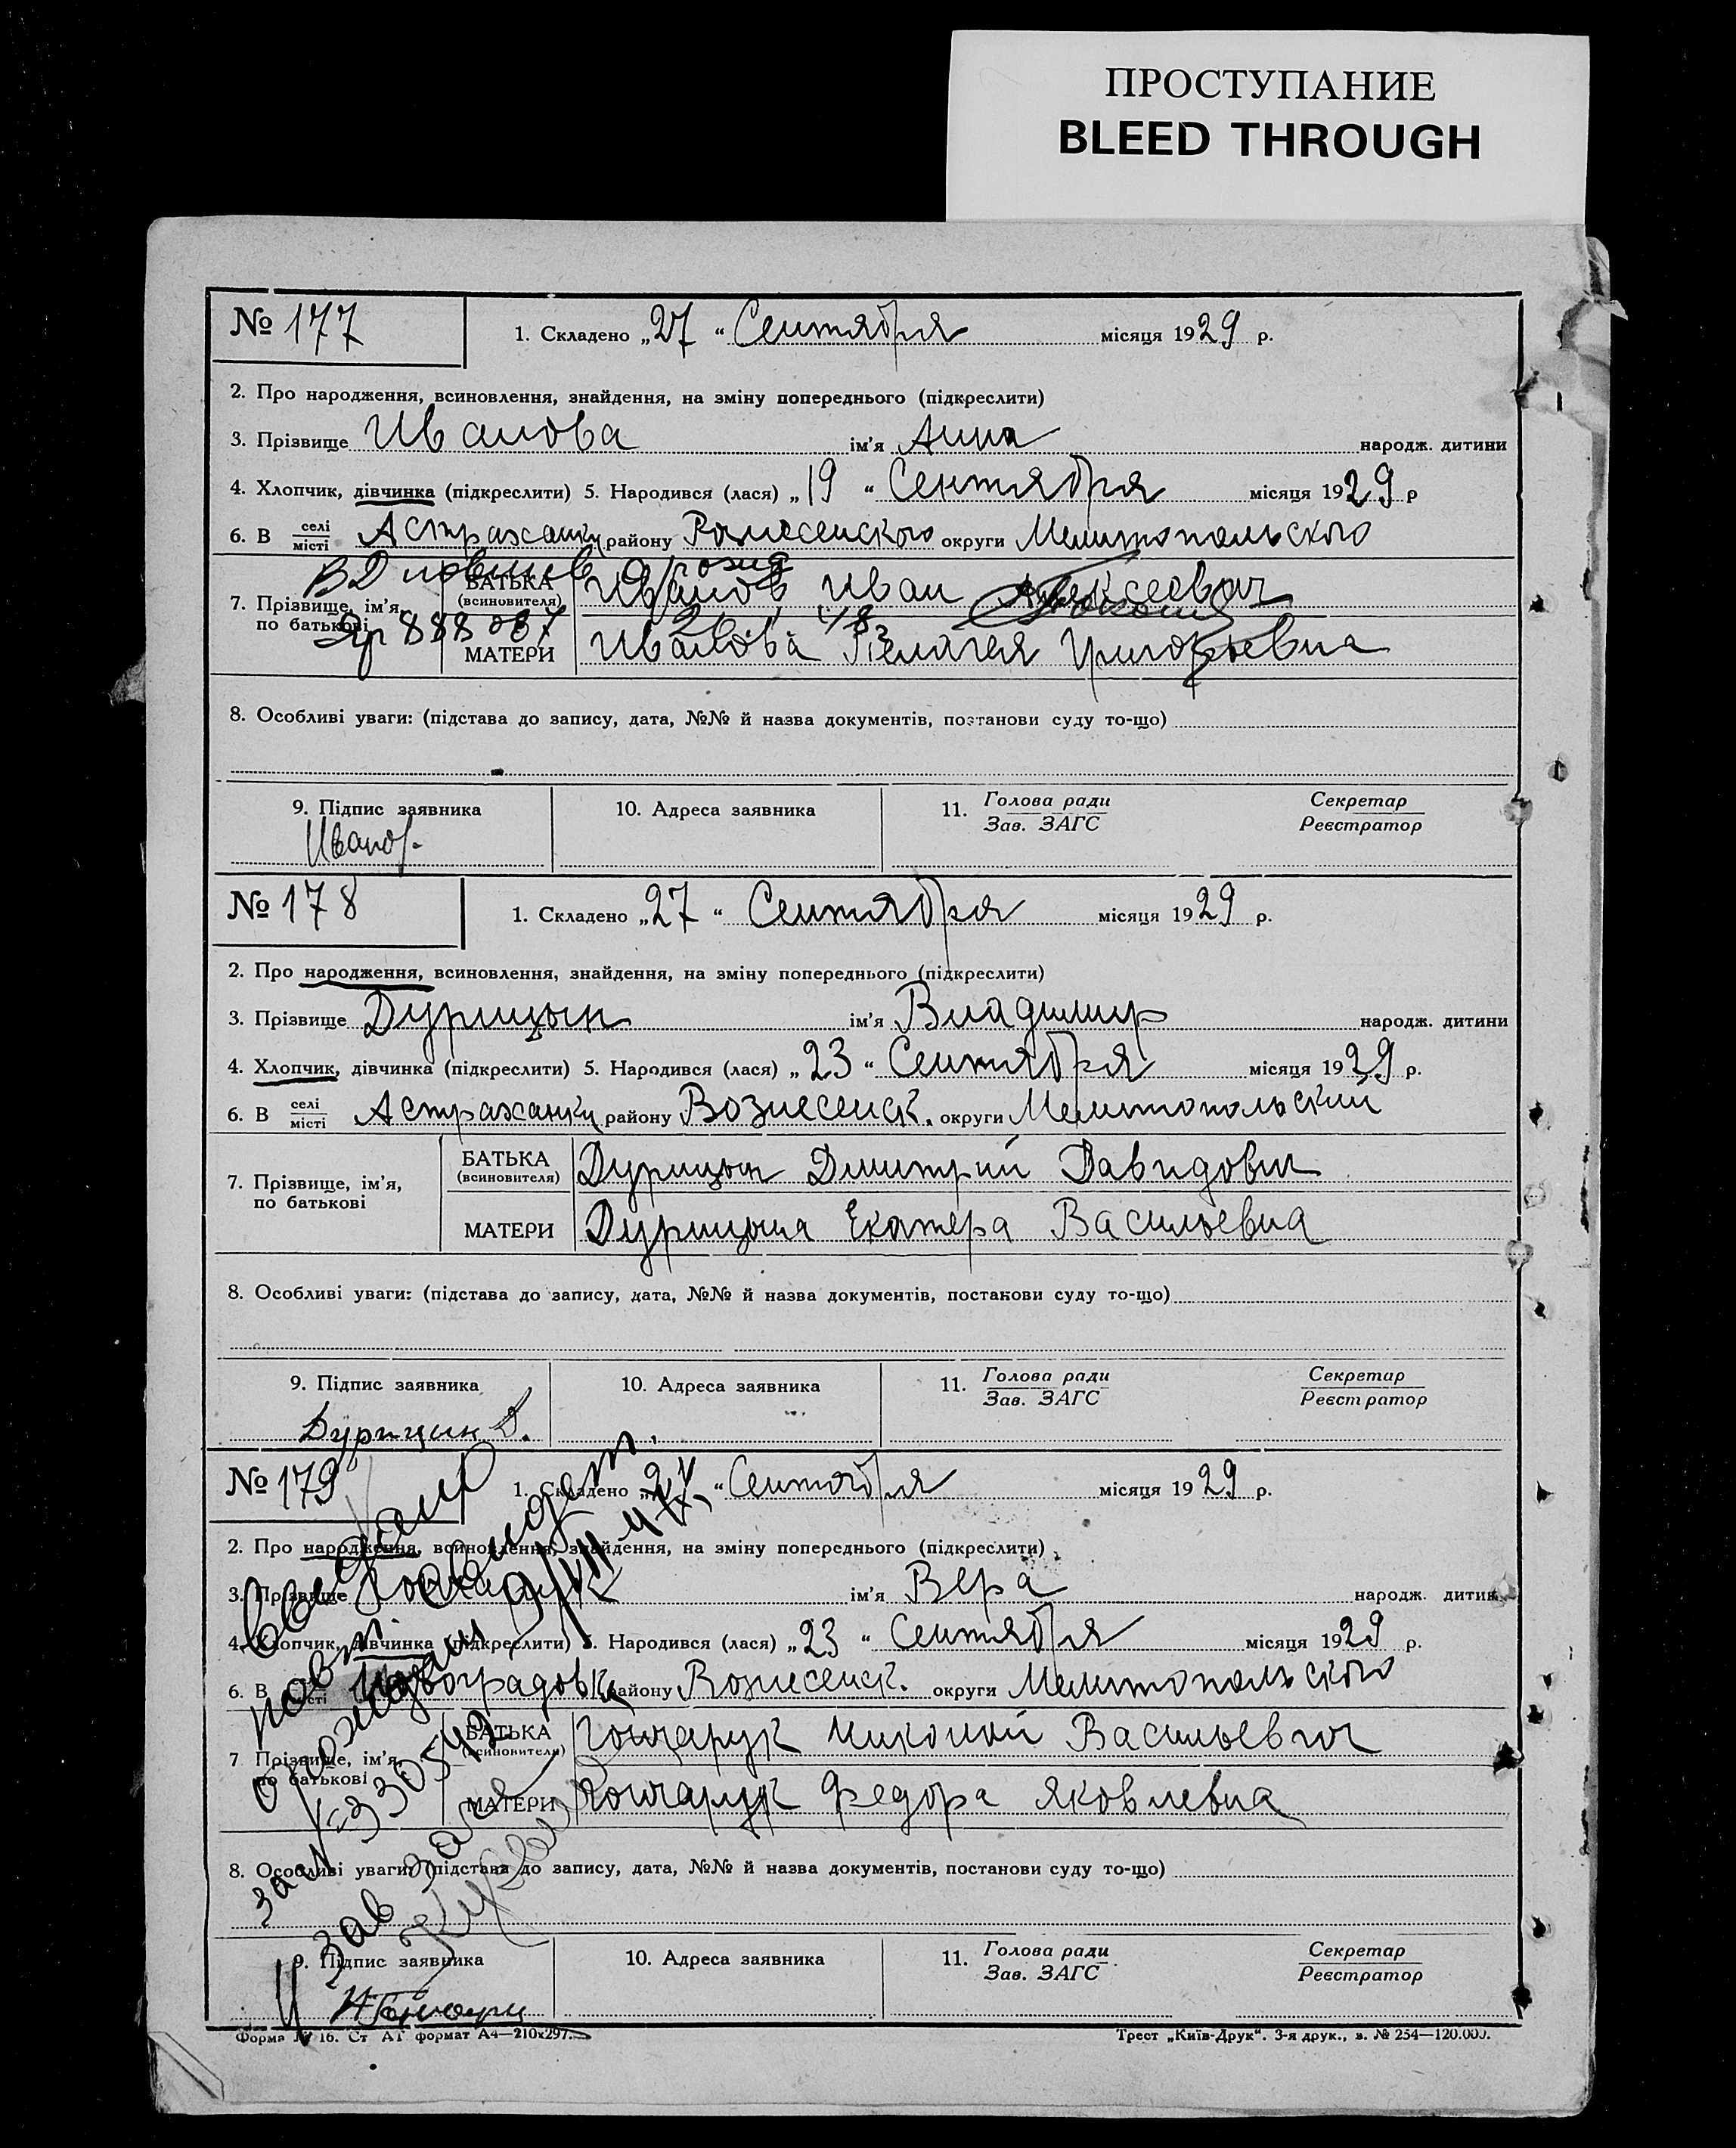 ПРОСТУПАНИЕ
BLEED THROUGH
№ 177
1. Складено „27“ Сентября місяця 1929 р.
2. Про народження, всиновлення, знайдення, на зміну попереднього (підкреслити)
3. Прізвище Иванова ім'я Анна народж. дитини
4. Хлопчик, дівчинка (підкреслити) 5. Народився (лася) „19“ Сентября місяця 1929 р
6. В селі місті Астраханки району округи Мелитопольского
7. Прізвище, ім'я, по батькові
БАТЬКА (всиновителя) Иванов Иван Алексеевич
МАТЕРИ Иванова Пелагея Григорьевна
8. Особливі уваги: (підстава до запису, дата, №№ й назва документів, постанови суду то-що)
9. Підпис заявника 10. Адреса заявника 11. Голова ради Зав. ЗАГС Секретар Реєстратор
Иванов.
№ 178
1. Складено „27“ Сентября місяця 1929 р.
2. Про народження, всиновлення, знайдення, на зміну попереднього (підкреслити)
3. Прізвище Дурицын ім'я Владимир народж. дитини
4. Хлопчик, дівчинка (підкреслити) 5. Народився (лася) „23“ Сентября місяця 1929 р.
6. В селі місті Астраханки району Вознесенск. округи Мелитопольский
7. Прізвище, ім'я, по батькові
БАТЬКА (всиновителя) Дурицын Дмитрий Давидович
МАТЕРИ Дурицына Екатера Васильевна
8. Особливі уваги: (підстава до запису, дата, №№ й назва документів, постанови суду то-що)
9. Підпис заявника 10. Адреса заявника 11. Голова ради Зав. ЗАГС Секретар Реєстратор
Дурицин Д.
№ 179
1. Складено „27“ Сентября місяця 1929 р.
2. Про народження, всиновлення, знайдення, на зміну попереднього (підкреслити)
3. Прізвище Гончарук ім'я Вера народж. дитини
4. Хлопчик, дівчинка (підкреслити) 5. Народився (лася) „23“ Сентября місяця 1929 р.
6. В місті району Вознесенск. округи Мелитопольского
7 Прізвище, ім'я, по батькові
БАТЬКА (всиновителя) Гончарук Николай Васильевич
МАТЕРИ Гончарук Федора Яковлевна
8. Особливі уваги: (підстава до запису, дата, №№ й назва документів, постанови суду то-що)
9. Підпис заявника 10. Адреса заявника 11. Голова ради Зав. ЗАГС Секретар Реєстратор
Форма № 16. Ст АГ формат А4—210х297.
Трест „Київ-Друк“. 3-я друк., з. № 254—120.000.